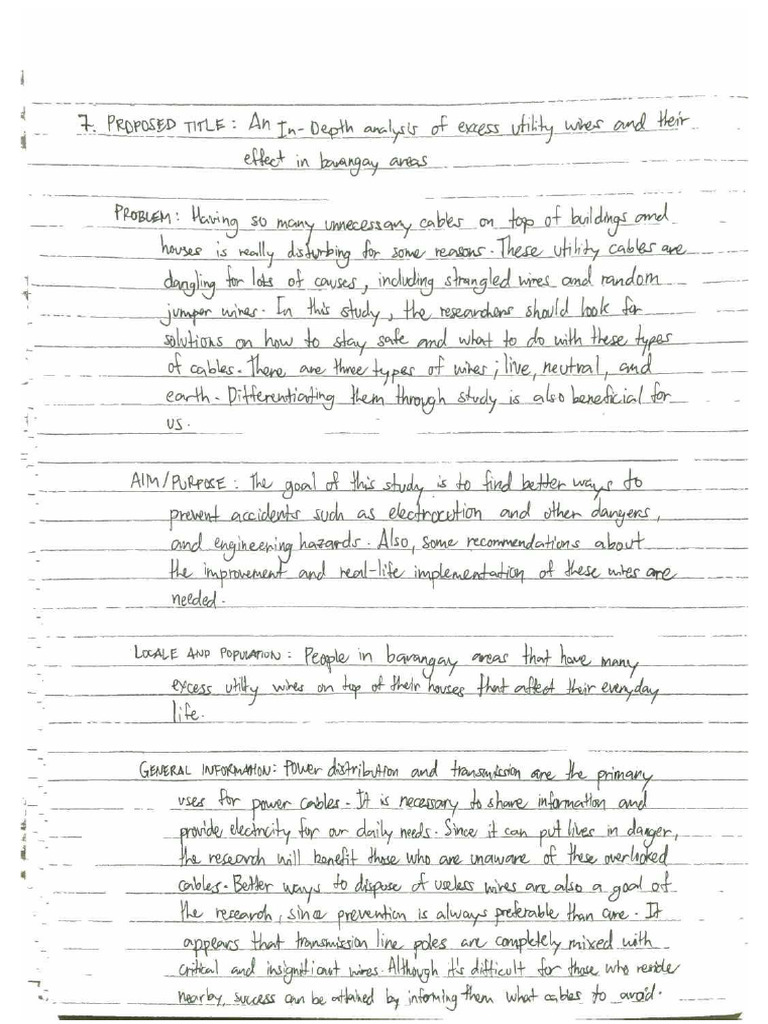 7. PROPOSED TITLE: An In-Depth analysis of excess utility wires and their
effect in barangay areas
PROBLEM: Having so many unnecessary cables on top of buildings and
houses is really disturbing for some reasons. These utility cables are
dangling for lots of causes, including strangled wires and random
jumper wires. In this study, the researchers should look for
solutions on how to stay safe and what to do with these types
of cables. There are three types of wires; live, neutral, and
earth. Differentiating them through study is also beneficial for
us.
AIM/PURPOSE: The goal of this study is to find better ways to
prevent accidents such as electrocution and other dangers,
and engineering hazards. Also, some recommendations about
the improvement and real-life implementation of these wires are
needed.
LOCALE AND POPULATION: People in barangay areas that have many
excess utilty wires on top of their houses that affect their everyday
life.
GENERAL INFORMATION: Power distribution and transmission are the primary
uses for power cables. It is necessary to share information and
provide electricity for our daily needs. Since it can put lives in danger,
the research will benefit those who are unaware of these overlooked
cables. Better ways to dispose of useless wires are also a goal of
the research, since prevention is always preferable than cure. It
appears that transmission line poles are completely mixed with
critical and insignificant wires. Although it's difficult for those who reside
nearby, success can be attained by informing them what cables to avoid.